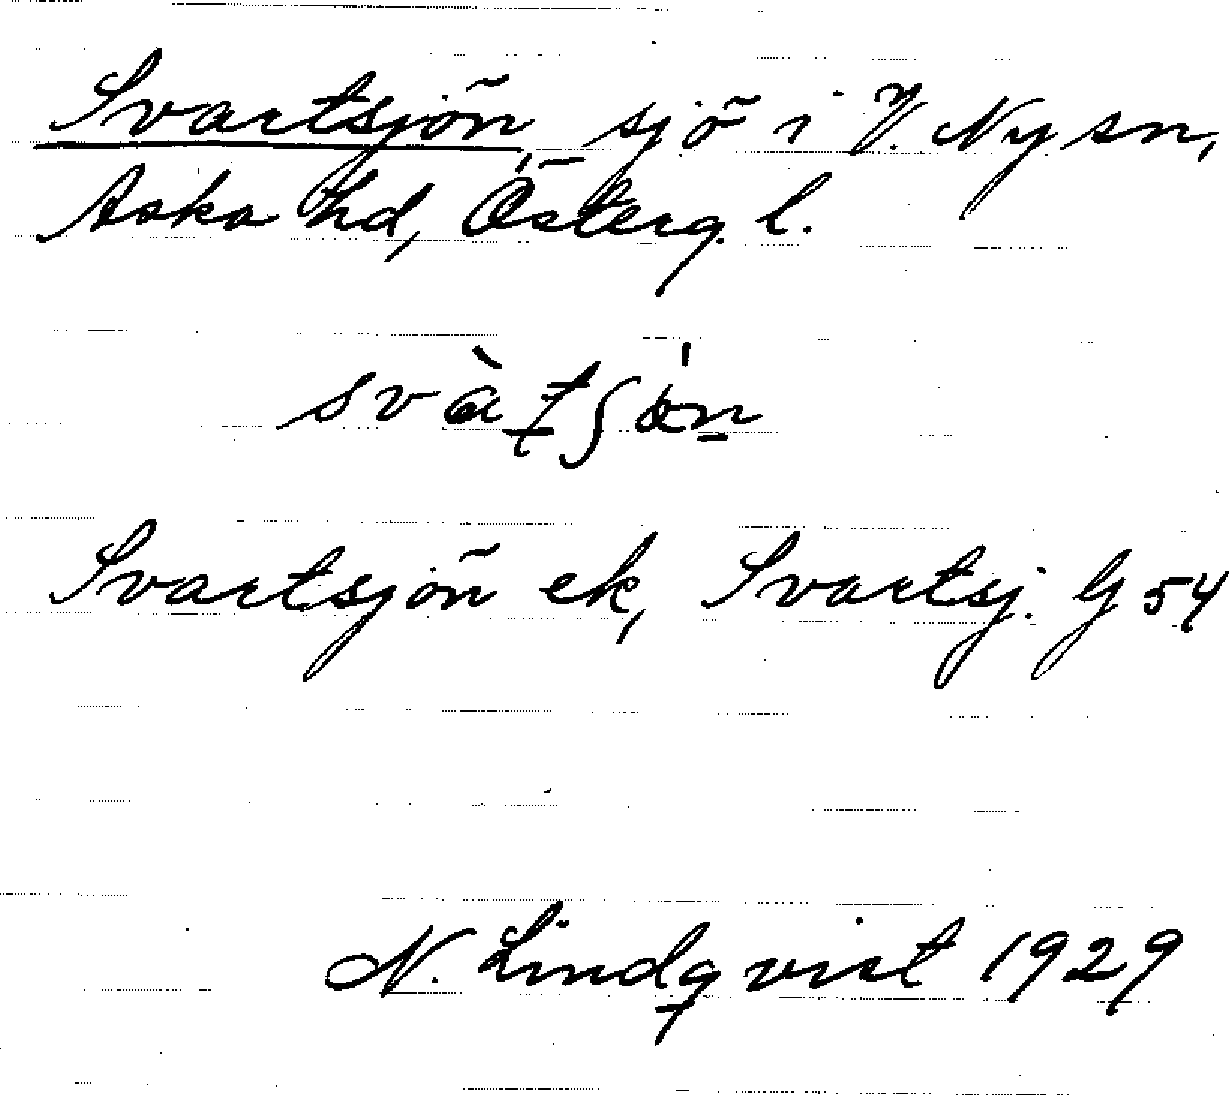 Svartsjön sjö i V. Ny sn,
Aska hd, Österg. l.
Svartsjön ek, Svartsj. G 54
N. Lindqvist 1929